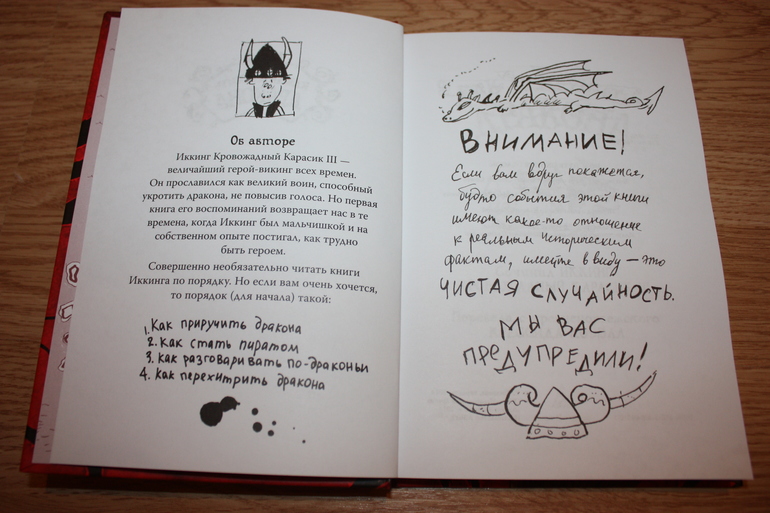 Об авторе
Иккинг Кровожадный Карасик III —
величайший герой-викинг всех времен.
Он прославился как великий воин, способный
укротить дракона, не повысив голоса. Но первая
книга его воспоминаний возвращает нас в те
времена, когда Иккинг был мальчишкой и на
собственном опыте постигал, как трудно
быть героем.
Совершенно необязательно читать книги
Иккинга по порядку. Но если вам очень хочется,
то порядок (для начала) такой:
1. Как приручить дракона
2. Как стать пиратом
3. Как разговаривать по-драконьи
4. Как перехитрить дракона
ВНИМАНИЕ!
Если вам вдруг покажется,
будто события этой книги
имеют какое-то отношение
к реальным историческим
фактам, имейте в виду — это
ЧИСТАЯ СЛУЧАЙНОСТЬ.
МЫ ВАС
ПРЕДУПРЕДИЛИ!